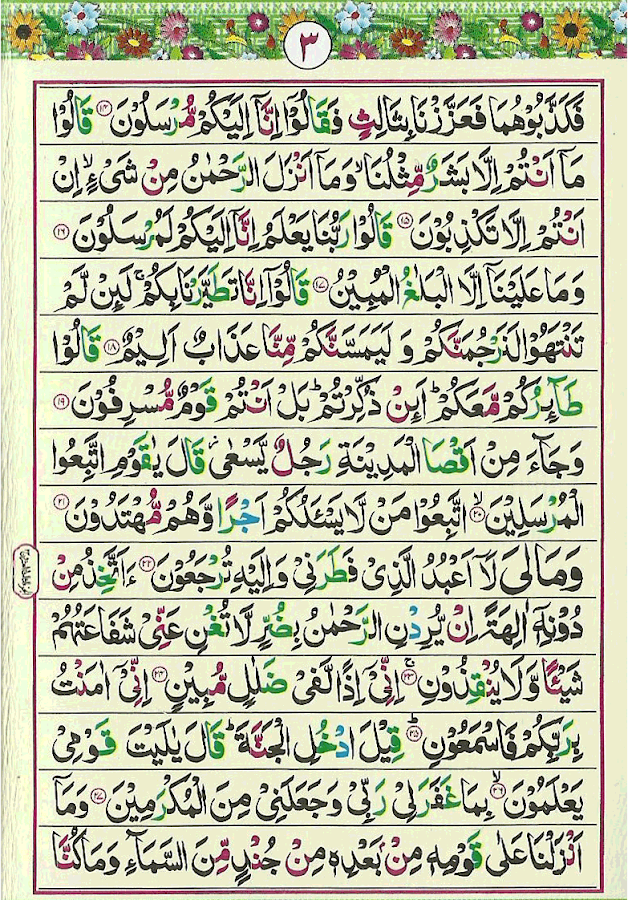 ٣
فَكَذَّبُوْهُمَا فَعَزَّزْنَا بِثَالِثٍ فَقَالُوْۤا اِنَّاۤ اِلَيْكُمْ مُّرْسَلُوْنَ ﴿۱۴﴾ قَالُوْا
مَاۤ اَنْتُمْ اِلَّا بَشَرٌ مِّثْلُنَا ۙ وَمَاۤ اَنْزَلَ الرَّحْمٰنُ مِنْ شَىْءٍ ۙ اِنْ
اَنْتُمْ اِلَّا تَكْذِبُوْنَ ﴿۱۵﴾ قَالُوْا رَبُّنَا يَعْلَمُ اِنَّاۤ اِلَيْكُمْ لَمُرْسَلُوْنَ ﴿۱۶﴾
وَمَا عَلَيْنَاۤ اِلَّا الْبَلٰغُ الْمُبِيْنُ ﴿۱۷﴾ قَالُوْۤا اِنَّا تَطَيَّرْنَا بِكُمْ ۚ لَئِنْ لَّمْ
تَنْتَهُوْا لَنَرْجُمَنَّكُمْ وَ لَيَمَسَّنَّكُمْ مِّنَّا عَذَابٌ اَلِيْمٌ ﴿۱۸﴾ قَالُوْا
طَآئِرُكُمْ مَّعَكُمْ ؕ اَئِنْ ذُكِّرْتُمْ ؕ بَلْ اَنْتُمْ قَوْمٌ مُّسْرِفُوْنَ ﴿۱۹﴾
وَجَآءَ مِنْ اَقْصَا الْمَدِيْنَةِ رَجُلٌ يَّسْعٰى ۫ قَالَ يٰقَوْمِ اتَّبِعُوا
الْمُرْسَلِيْنَ ﴿۲۰﴾ۙ اتَّبِعُوْا مَنْ لَّا يَسْئَلُكُمْ اَجْرًا وَّهُمْ مُّهْتَدُوْنَ ﴿۲۱﴾
وَمَا لِىَ لَاۤ اَعْبُدُ الَّذِىْ فَطَرَنِىْ وَاِلَيْهِ تُرْجَعُوْنَ ﴿۲۲﴾ ءَاَتَّخِذُ مِنْ
دُوْنِهٖۤ اٰلِهَةً اِنْ يُّرِدْنِ الرَّحْمٰنُ بِضُرٍّ لَّا تُغْنِ عَنِّىْ شَفَاعَتُهُمْ
شَيْئًا وَّلَا يُنْقِذُوْنِ ﴿۲۳﴾ۚ اِنِّىْۤ اِذًا لَّفِىْ ضَلٰلٍ مُّبِيْنٍ ﴿۲۴﴾ اِنِّىْۤ اٰمَنْتُ
بِرَبِّكُمْ فَاسْمَعُوْنِ ﴿۲۵﴾ؕ قِيْلَ ادْخُلِ الْجَنَّةَ ؕ قَالَ يٰلَيْتَ قَوْمِىْ
يَعْلَمُوْنَ ﴿۲۶﴾ۙ بِمَا غَفَرَ لِىْ رَبِّىْ وَجَعَلَنِىْ مِنَ الْمُكْرَمِيْنَ ﴿۲۷﴾ وَمَاۤ
اَنْزَلْنَا عَلٰى قَوْمِهٖ مِنْۢ بَعْدِهٖ مِنْ جُنْدٍ مِّنَ السَّمَآءِ وَمَا كُنَّا